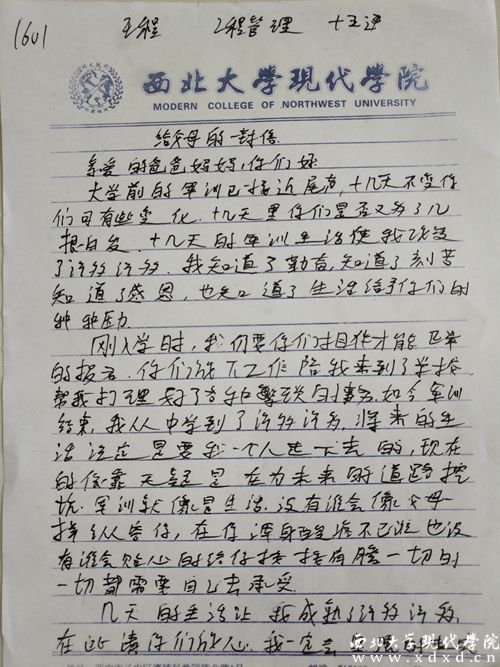 1601 王程 工程管理 十五连
西北大学现代学院
MODERN COLLEGE OF NORTHWEST UNIVERSITY
给父母的一封信
亲爱的爸爸妈妈,你们好
大学前的军训已接近尾声,十几天不见你
们可有些变化.十几天里你们是否又多了几
根白发.十几天的军训生活使我改变
了许多许多.我知道了勤奋,知道了刻苦
知道了感恩,也知道了生活给予你们的
种种压力.
刚入学时,我仍要你们才能正常
的报名.你们放下工作陪我来到了学校
帮我打理好了各种繁琐的事务,如今军训
结束.我从中学到了许多许多.将来的生
活注定是要我一个人走下去的,现在
的依靠无疑是在为未来的道路挖
坑.军训就像是生活.没有谁会像父母一
样纵容你,在你浑身酸疼不已谁也没
有谁会贴心的给你揉揉肩腰一切的
一切都需要自己去承受.
几天的生活让我成熟了许多许多.
在此请你们放心.我一定会
西北大学现代学院
www.xdxd.cn